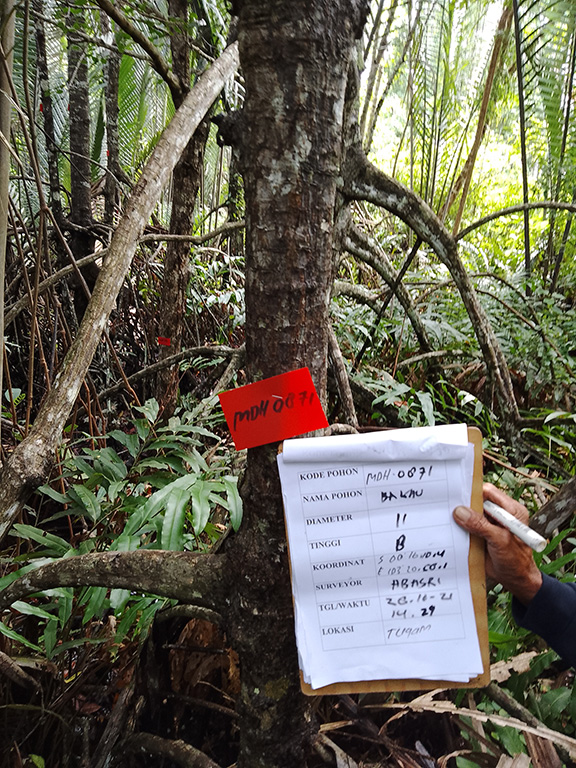 MDH 0871
KODE POHON MDH-0871
NAMA POHON BAKAU
DIAMETER 11
TINGGI B
KOORDINAT S 00 16 00.4
E 103.20.60.1
SURVEYOR ABASRI
TGL/WAKTU 28-10-21
14.29
LOKASI